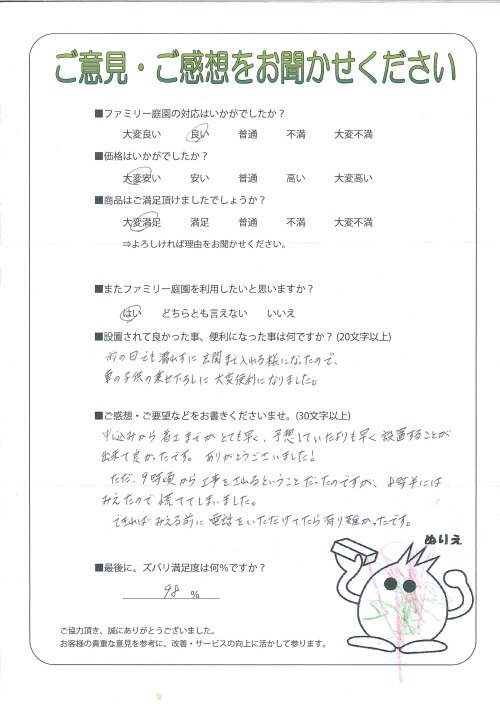 ご意見・ご感想をお聞かせください
■ファミリー庭園の対応はいかがでしたか？
大変良い 良い 普通 不満 大変不満
■価格はいかがでしたか？
大変安い 安い 普通 高い 大変高い
■商品はご満足頂けましたでしょうか？
大変満足 満足 普通 不満 大変不満
⇒よろしければ理由をお聞かせください。
■またファミリー庭園を利用したいと思いますか？
はい どちらとも言えない いいえ
■設置されて良かった事、便利になった事は何ですか？(20文字以上)
雨の日でも濡れずに玄関まで入れる様になったので、
車の子供の乗せ下ろしに大変便利になりました。
■ご感想・ご要望などをお書きくださいませ。(30文字以上)
申込みから着工までがとても早く、予想していたよりも早く設置することが
出来て良かったです。ありがとうございました！
ただ、9時頃から工事をされるということだったのですが、8時半には
みえたので慌ててしまいました。
できればみえる前に電話をいただけてたら有り難かったです。
ぬりえ
■最後に、ズバリ満足度は何％ですか？
98 %
ご協力頂き、誠にありがとうございました。
お客様の貴重な意見を参考に、改善・サービスの向上に活かして参ります。